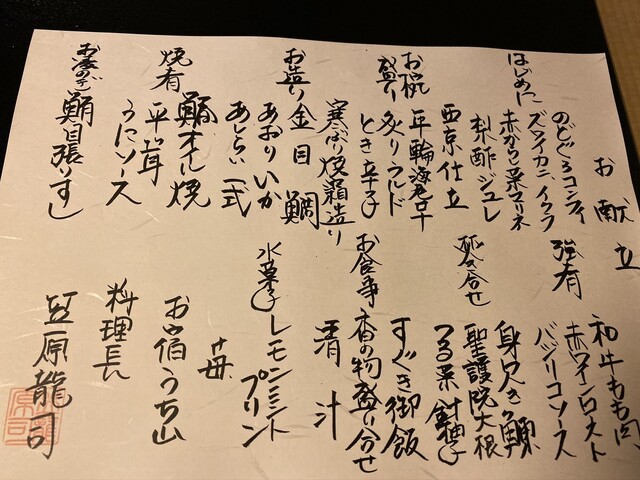 お献立
はじめに
のどぐろコンフィ
ズワイカニ、イクラ
赤からし菜マリネ
梨酢ジュレ
お椀
西京仕立
平輪海老芋
盛り
炙りウルド
とき辛子
お造り
寒ぶり焼霜造り
金目鯛
あおりいか
あしらい一式
焼肴
鰆オイル焼
平茸
うにソース
お凌のぎ
鮪目張りすし
強肴
和牛もも肉、
赤ワインロースト
バジリコソース
炊き合せ
身欠き鰊
聖護院大根
つる菜 針柚子
お食事
すぐき御飯
香の物盛り合せ
清汁
水菓子
レモンミント
プリン
苺
お宿うち山
料理長
笠原龍司